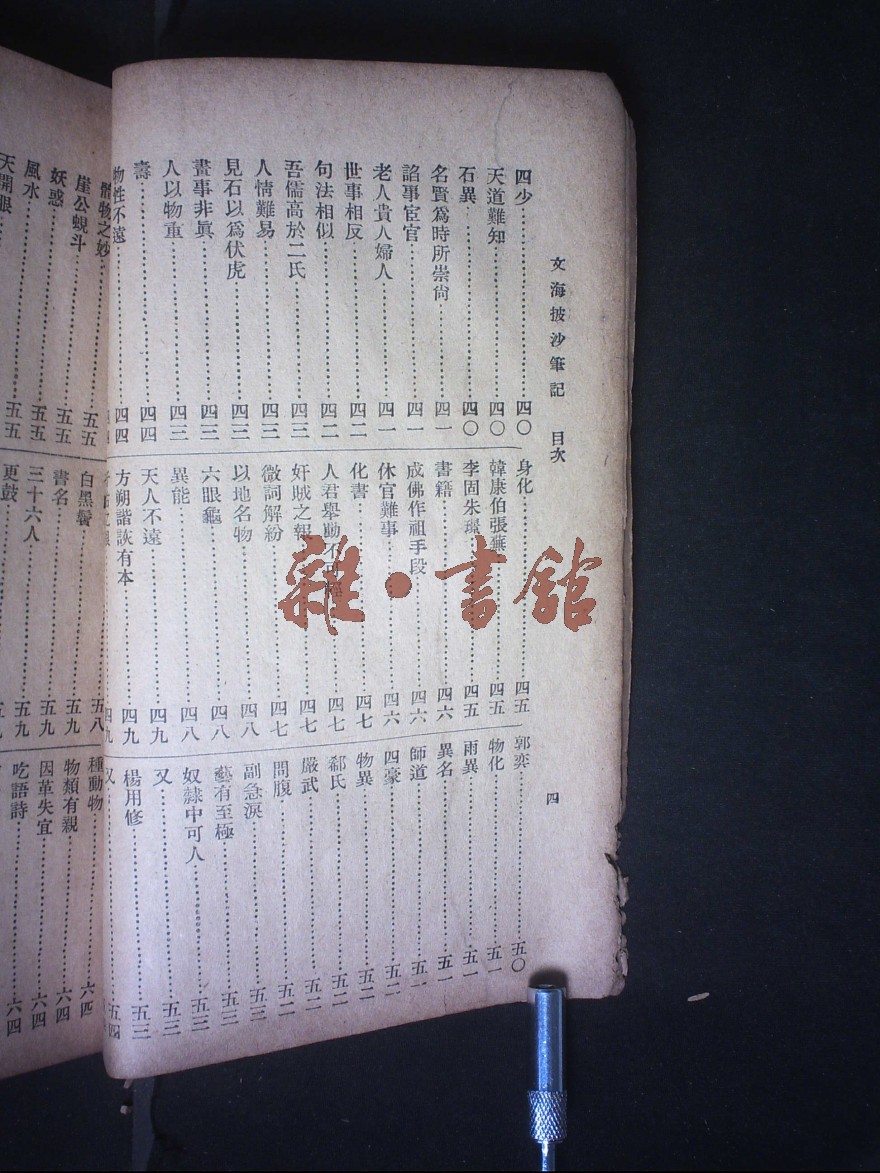 文海披沙筆記 目次 四
四少 四〇
天道難知 四〇
石異 四〇
名賢爲時所崇尙 四一
諂事宦官 四一
老人貴人婦人 四一
世事相反 四二
句法相似 四二
吾儒高於二氏 四三
人情難易 四三
見石以爲伏虎 四三
畫事非眞 四三
人以物重 四三
壽 四四
物性不遠 四四
身化 四五
韓康伯張燕 四五
李固朱璟 四五
書籍 四六
成佛作祖手段 四六
休官難事 四六
化書 四七
人君舉動不可輕 四七
奸賊之報 四七
微詞解紛 四七
以地名物 四八
六眼龜 四八
異能 四八
天人不遠 四九
方朔諧詼有本 四九
四九
郭奕 五〇
物化 五一
雨異 五一
異名 五一
師道 五一
四豪 五二
物異 五二
郗氏 五二
嚴武 五二
問腹 五二
副急淚 五三
藝有至極 五三
奴隸中可人 五三
又 五三
楊用修 五三
又 五四
體物之妙
崖公蜆斗 五五
妖惑 五五
風水 五五
天開眼 五五
白黑鬢 五八
書名 五九
三十六人 五九
更鼓
種動物 六四
物類有親 六四
因革失宜 六四
吃語詩 六四
雜·書館